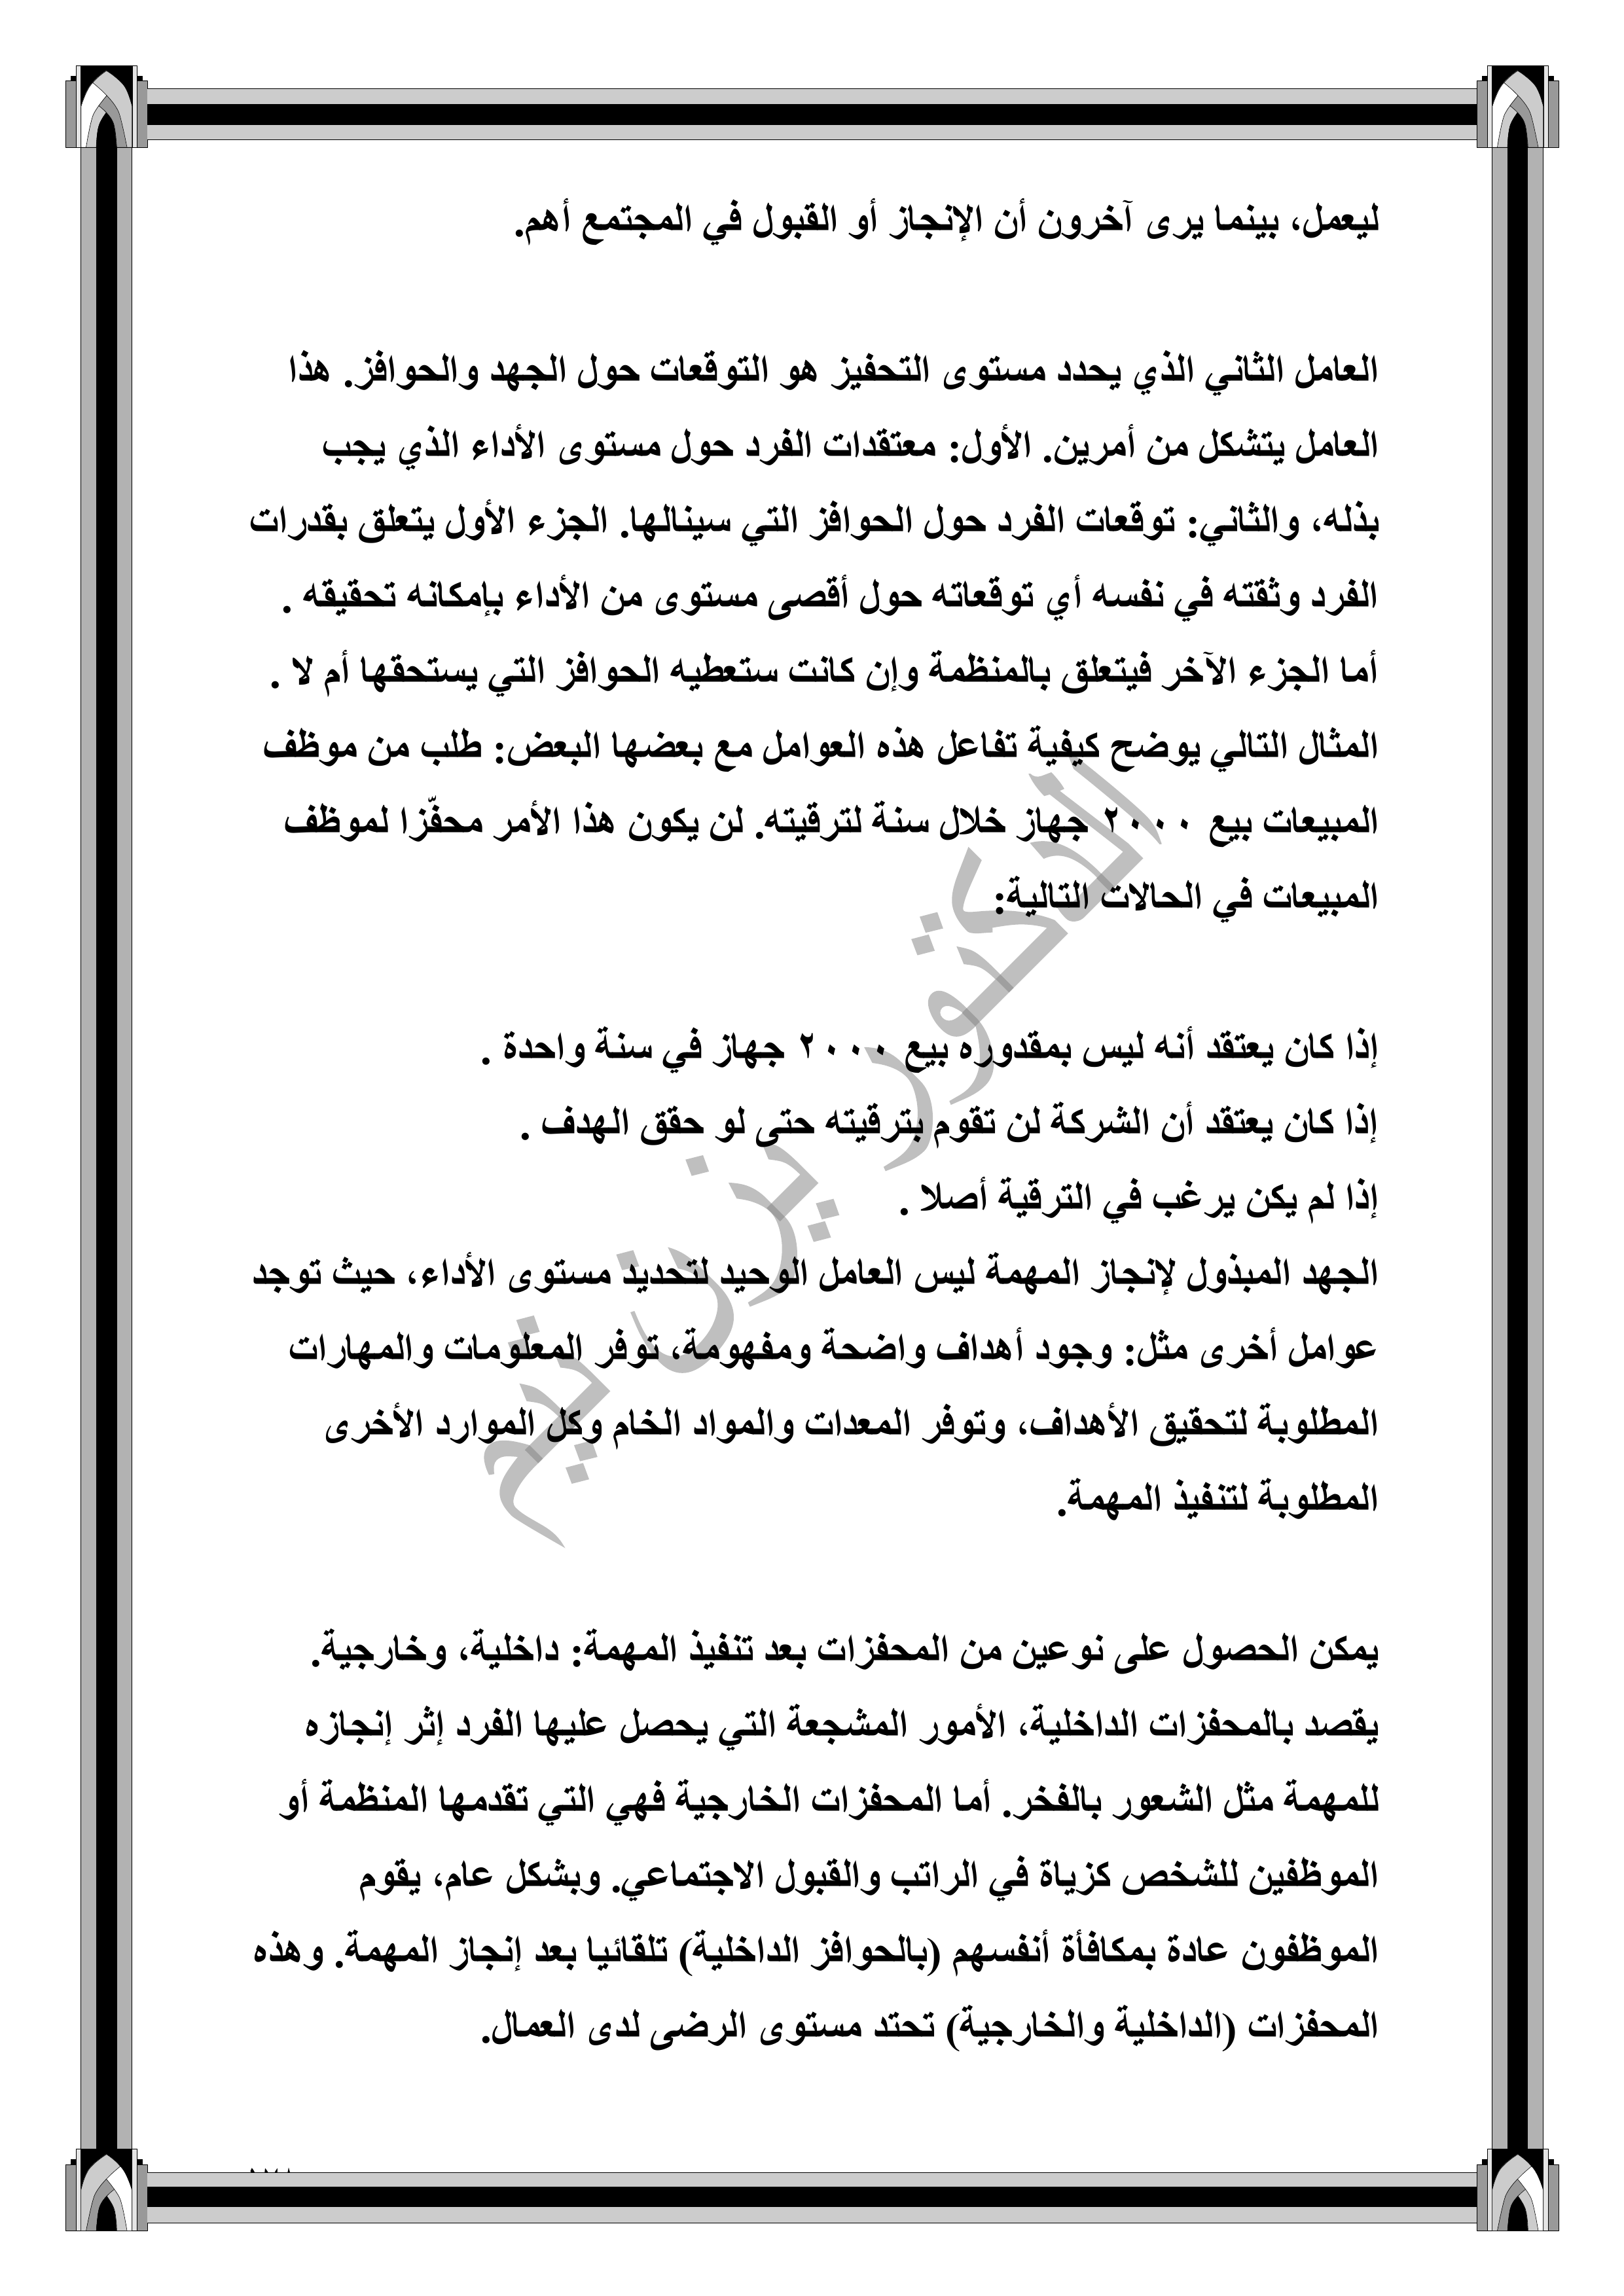 ليعمل، بينما يرى آخرون أن الإنجاز أو القبول في المجتمع أهم.
العامل الثاني الذي يحدد مستوى التحفيز هو التوقعات حول الجهد والحوافز. هذا
العامل يتشكل من أمرين. الأول: معتقدات الفرد حول مستوى الأداء الذي يجب
بذله، والثاني: توقعات الفرد حول الحوافز التي سينالها. الجزء الأول يتعلق بقدرات
الفرد وثقته في نفسه أي توقعاته حول أقصى مستوى من الأداء بإمكانه تحقيقه .
أما الجزء الآخر فيتعلق بالمنظمة وإن كانت ستعطيه الحوافز التي يستحقها أم لا .
المثال التالي يوضح كيفية تفاعل هذه العوامل مع بعضها البعض: طلب من موظف
المبيعات بيع ٢٠٠٠ جهاز خلال سنة لترقيته. لن يكون هذا الأمر محفّزا لموظف
المبيعات في الحالات التالية:
إذا كان يعتقد أنه ليس بمقدوره بيع ٢٠٠٠ جهاز في سنة واحدة .
إذا كان يعتقد أن الشركة لن تقوم بترقيته حتى لو حقق الهدف .
إذا لم يكن يرغب في الترقية أصلا .
الجهد المبذول لإنجاز المهمة ليس العامل الوحيد لتحديد مستوى الأداء، حيث توجد
عوامل أخرى مثل: وجود أهداف واضحة ومفهومة، توفر المعلومات والمهارات
المطلوبة لتحقيق الأهداف، وتوفر المعدات والمواد الخام وكل الموارد الأخرى
المطلوبة لتنفيذ المهمة.
يمكن الحصول على نوعين من المحفزات بعد تنفيذ المهمة: داخلية، وخارجية.
يقصد بالمحفزات الداخلية، الأمور المشجعة التي يحصل عليها الفرد إثر إنجازه
للمهمة مثل الشعور بالفخر. أما المحفزات الخارجية فهي التي تقدمها المنظمة أو
الموظفين للشخص كزياة في الراتب والقبول الاجتماعي. وبشكل عام، يقوم
الموظفون عادة بمكافأة أنفسهم (بالحوافز الداخلية) تلقائيا بعد إنجاز المهمة. وهذه
المحفزات (الداخلية والخارجية) تحتد مستوى الرضى لدى العمال.
الدكتور يزن تيم